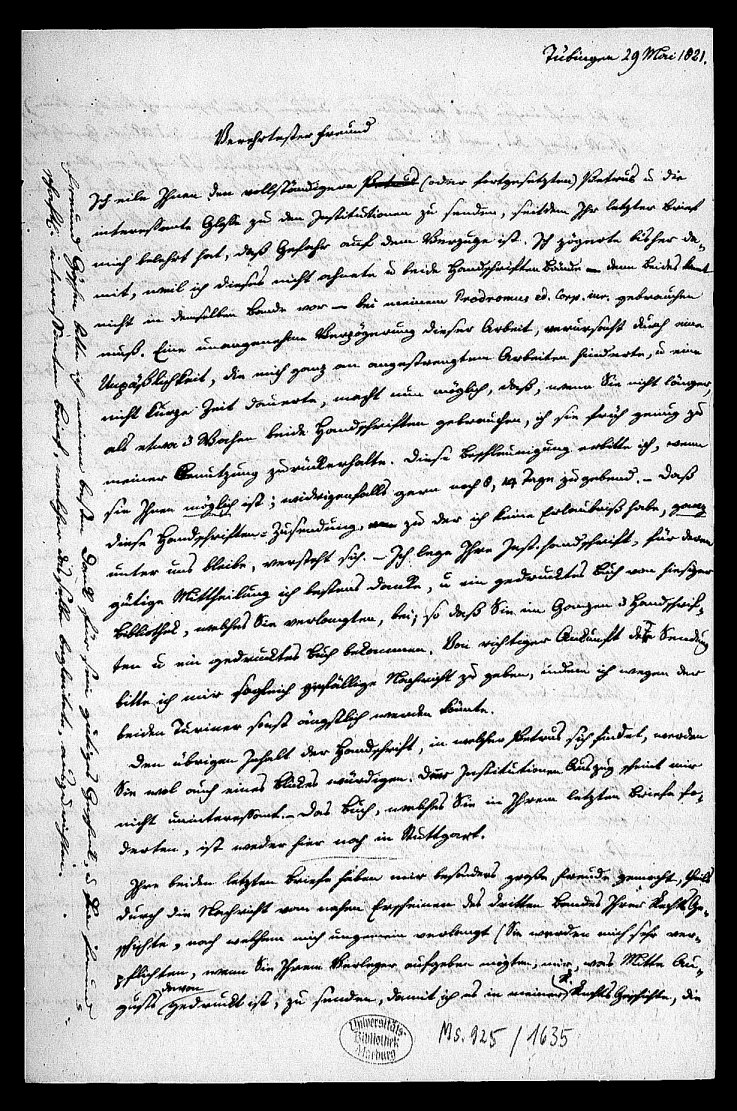 Tübingen 29 Mai 1821.
Verehrtester Freund
Ich eile Ihnen den vollständigern Petrus (oder fortgesetzten) Petrus u die
interessante Glosse zu den Institutionen zu senden, seitdem Ihr letzter Brief
mich belehrt hat, daß Gefahr auf dem Verzuge ist. Ich zögerte bisher da-
mit, weil ich dieses nicht ahnete u beide Handschriften Bände – denn beides kömt
nicht in demselben Bande vor – bei meinem Prodromus ed. Corp. iur. gebrauchen
muß. Eine unangenehme Verzögerung dieser Arbeit, verursacht durch eine
Unpäßlichkeit, die mich ganz an angestrengtem Arbeiten hinderte, u eine
nicht kurze Zeit dauerte, macht nun möglich, daß, wenn Sie nicht länger,
als etwa 3 Wochen beide Handschriften gebrauchen, ich sie früh genug zu
meiner Benutzung zurückerhalte. Diese Beschleunigung erbitte ich, wenn
sie Ihnen möglich ist; widrigenfalls gern noch 8, 14 Tage zugebend. – Daß
diese Handschriften-Zusendung, zu der ich keine Erlaubniß habe, ganz
unter uns bleibe, versteht sich. – Ich lege Ihre Inst. handschrift, für deren
gütige Mittheilung ich bestens danke, u ein gedrucktes Buch von hiesiger
Bibliothek, welches Sie verlangten, bei; so daß Sie im Ganzen 3 Handschrif-
ten u ein gedrucktes Buch bekommen. Von richtiger Ankunft der Sendung
bitte ich mir sogleich gefällige Nachricht zu geben, indem ich wegen der
beiden Turiner sonst ängstlich werden könte.
Den übrigen Inhalt der Handschrift, in welcher Petrus sich findet, werden
Sie wol auch eines Blickes würdigen. Der Institutionen Auszug scheint mir
nicht uninteressant. – Das Buch, welches Sie in Ihrem letzten Briefe fo-
derten, ist weder hier noch in Stuttgart.
Ihre beiden letzten Briefe haben mir besonders große Freude gemacht, theils
durch die Nachricht vom nahen Erscheinen des dritten Bandes Ihrer Rechts Ge-
schichte, nach welchem mich ungemein verlangt (Sie werden mich sehr ver-
pflichten, wenn Sie Ihrem Verleger aufgeben mögten, mir, was Mitte Au-
gusts davon gedruckt ist, zu senden, damit ich es in meiner Rechts Geschichte, die
Freund bitte ich meinen besten Dank für sein gütiges Geschenk, u den
Brief, welcher dasselbe begleitete, auszurichten.
Universitäts-
Bibliothek
Marburg
Ms. 925/1635